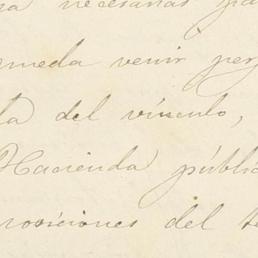 necesarias pa
emeda venir per
la del vínculo,
Hacienda públic
rovisiones del te